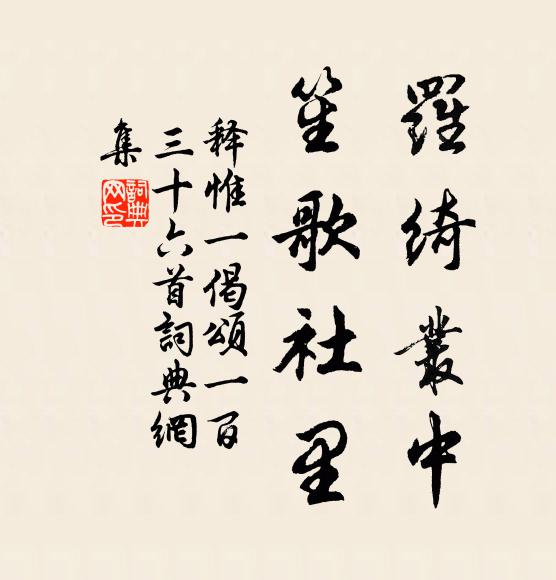 羅綺叢中
笙歌社里
释惟一偈頌一百
三十六首詞典網
集
詞典
网印